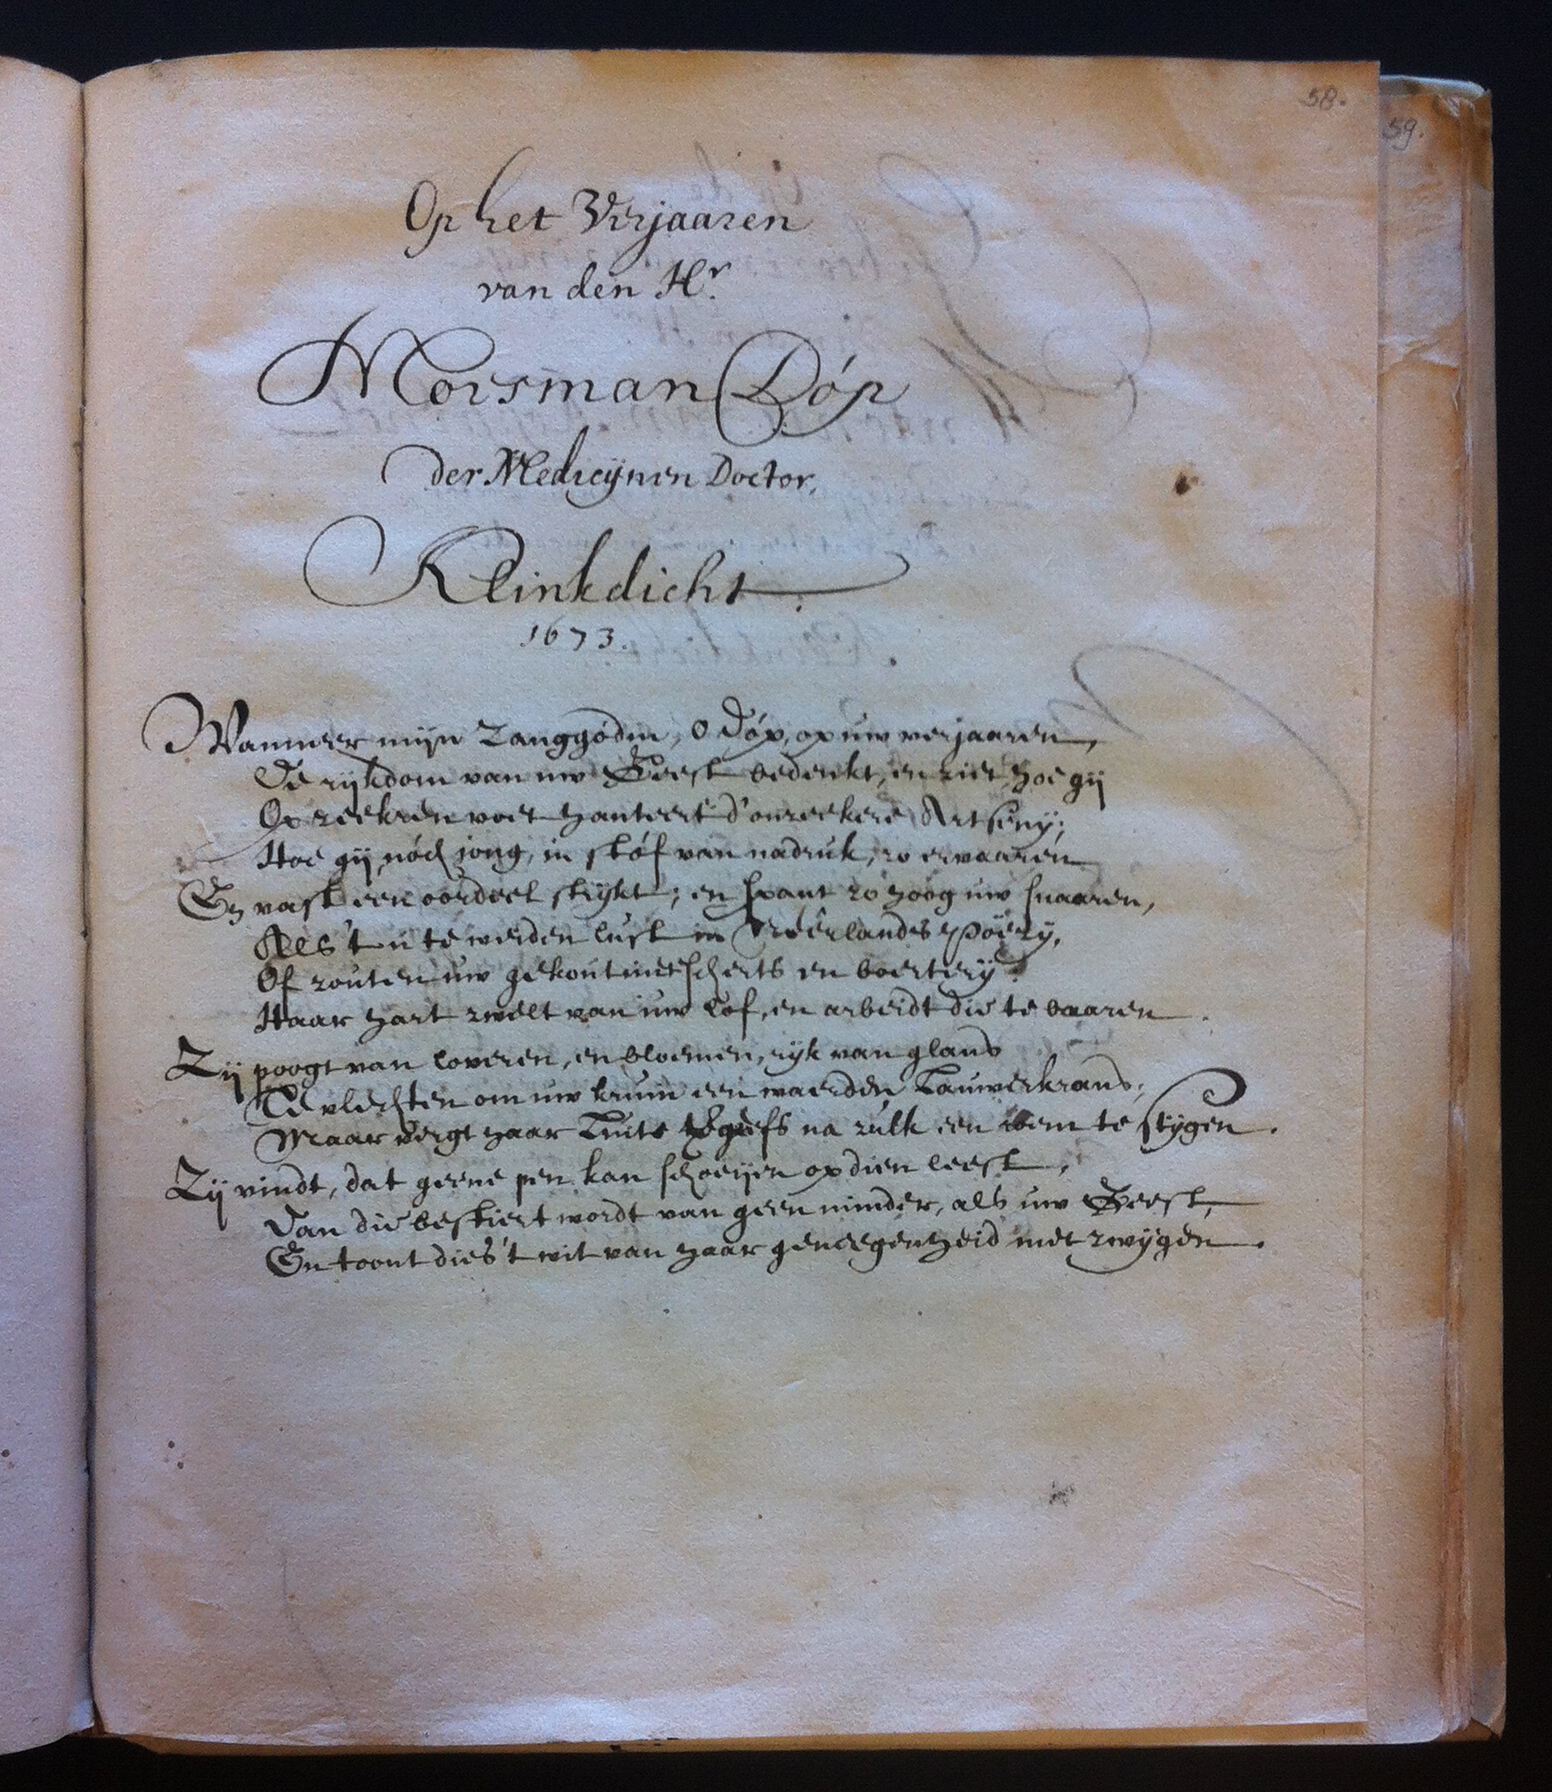 58.
59.
Op het Verjaaren
van den Hr.
Morsman Dóp
der Medicynen Doctor.
Klinkdicht.
1673.
Wanneer mijn Zanggódin, o Dóp, op uw verjaaren,
De rijkdom van uw Geest bedenkt, en ziet hoe gij
Op zeekren voet hanteert d'onzeekere Artseny;
Hoe gij, nóch jong, in stóf van nadruk, zo ervaaren
En vast een oordeel strijkt; en spant zo hoog uw snaaren,
Als 't u te werden lust in Neêrlands Poëzy,
Of zouten uw gekout met scherts en boertery;
Haar hart zwelt van uw lof, en arbeidt die te baaren.
Zij poogt van loveren, en bloemen, ryk van glans
Te vlechten om uw kruin een waerden Lauwerkrans;
Maar vergt haar Luit na zulk een toon te stygen.
Zij vindt, dat geene pen kan schoeijen op dien leest,
Dan die bestiert wordt van geen minder, als uw Geest,
En toont dies 't wit van haar geneegenheid met zwygen.